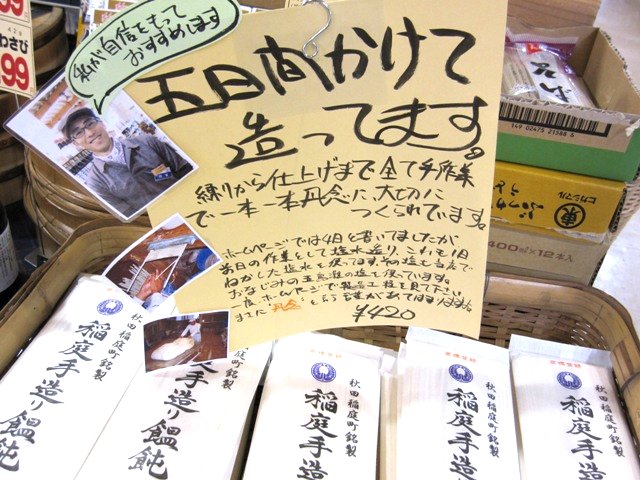 私が自信をもって
おすすめします
五日間かけて
造ってます。
練りから仕上げまで全て手作業
で一本一本丹念に、大切に
つくられています。
ホームページでは4日と書いてましたが
前日の作業として塩水造り
ねかした塩水を使ってます。その塩も当店で
おなじみの玉藻塩の塩を使っています。
一度ホームページで製造工程を見て下さい
まさに"丹念"という
¥420
わさび
99
そば
149 02475 21588 6
400㎖×12本入
秋田稲庭町銘製
稲庭手造り饂飩
手造り饂飩
秋田稲庭町銘製
稲庭手造
秋田稲庭町銘製
稲庭手造
秋田稲庭町銘製
稲庭手造